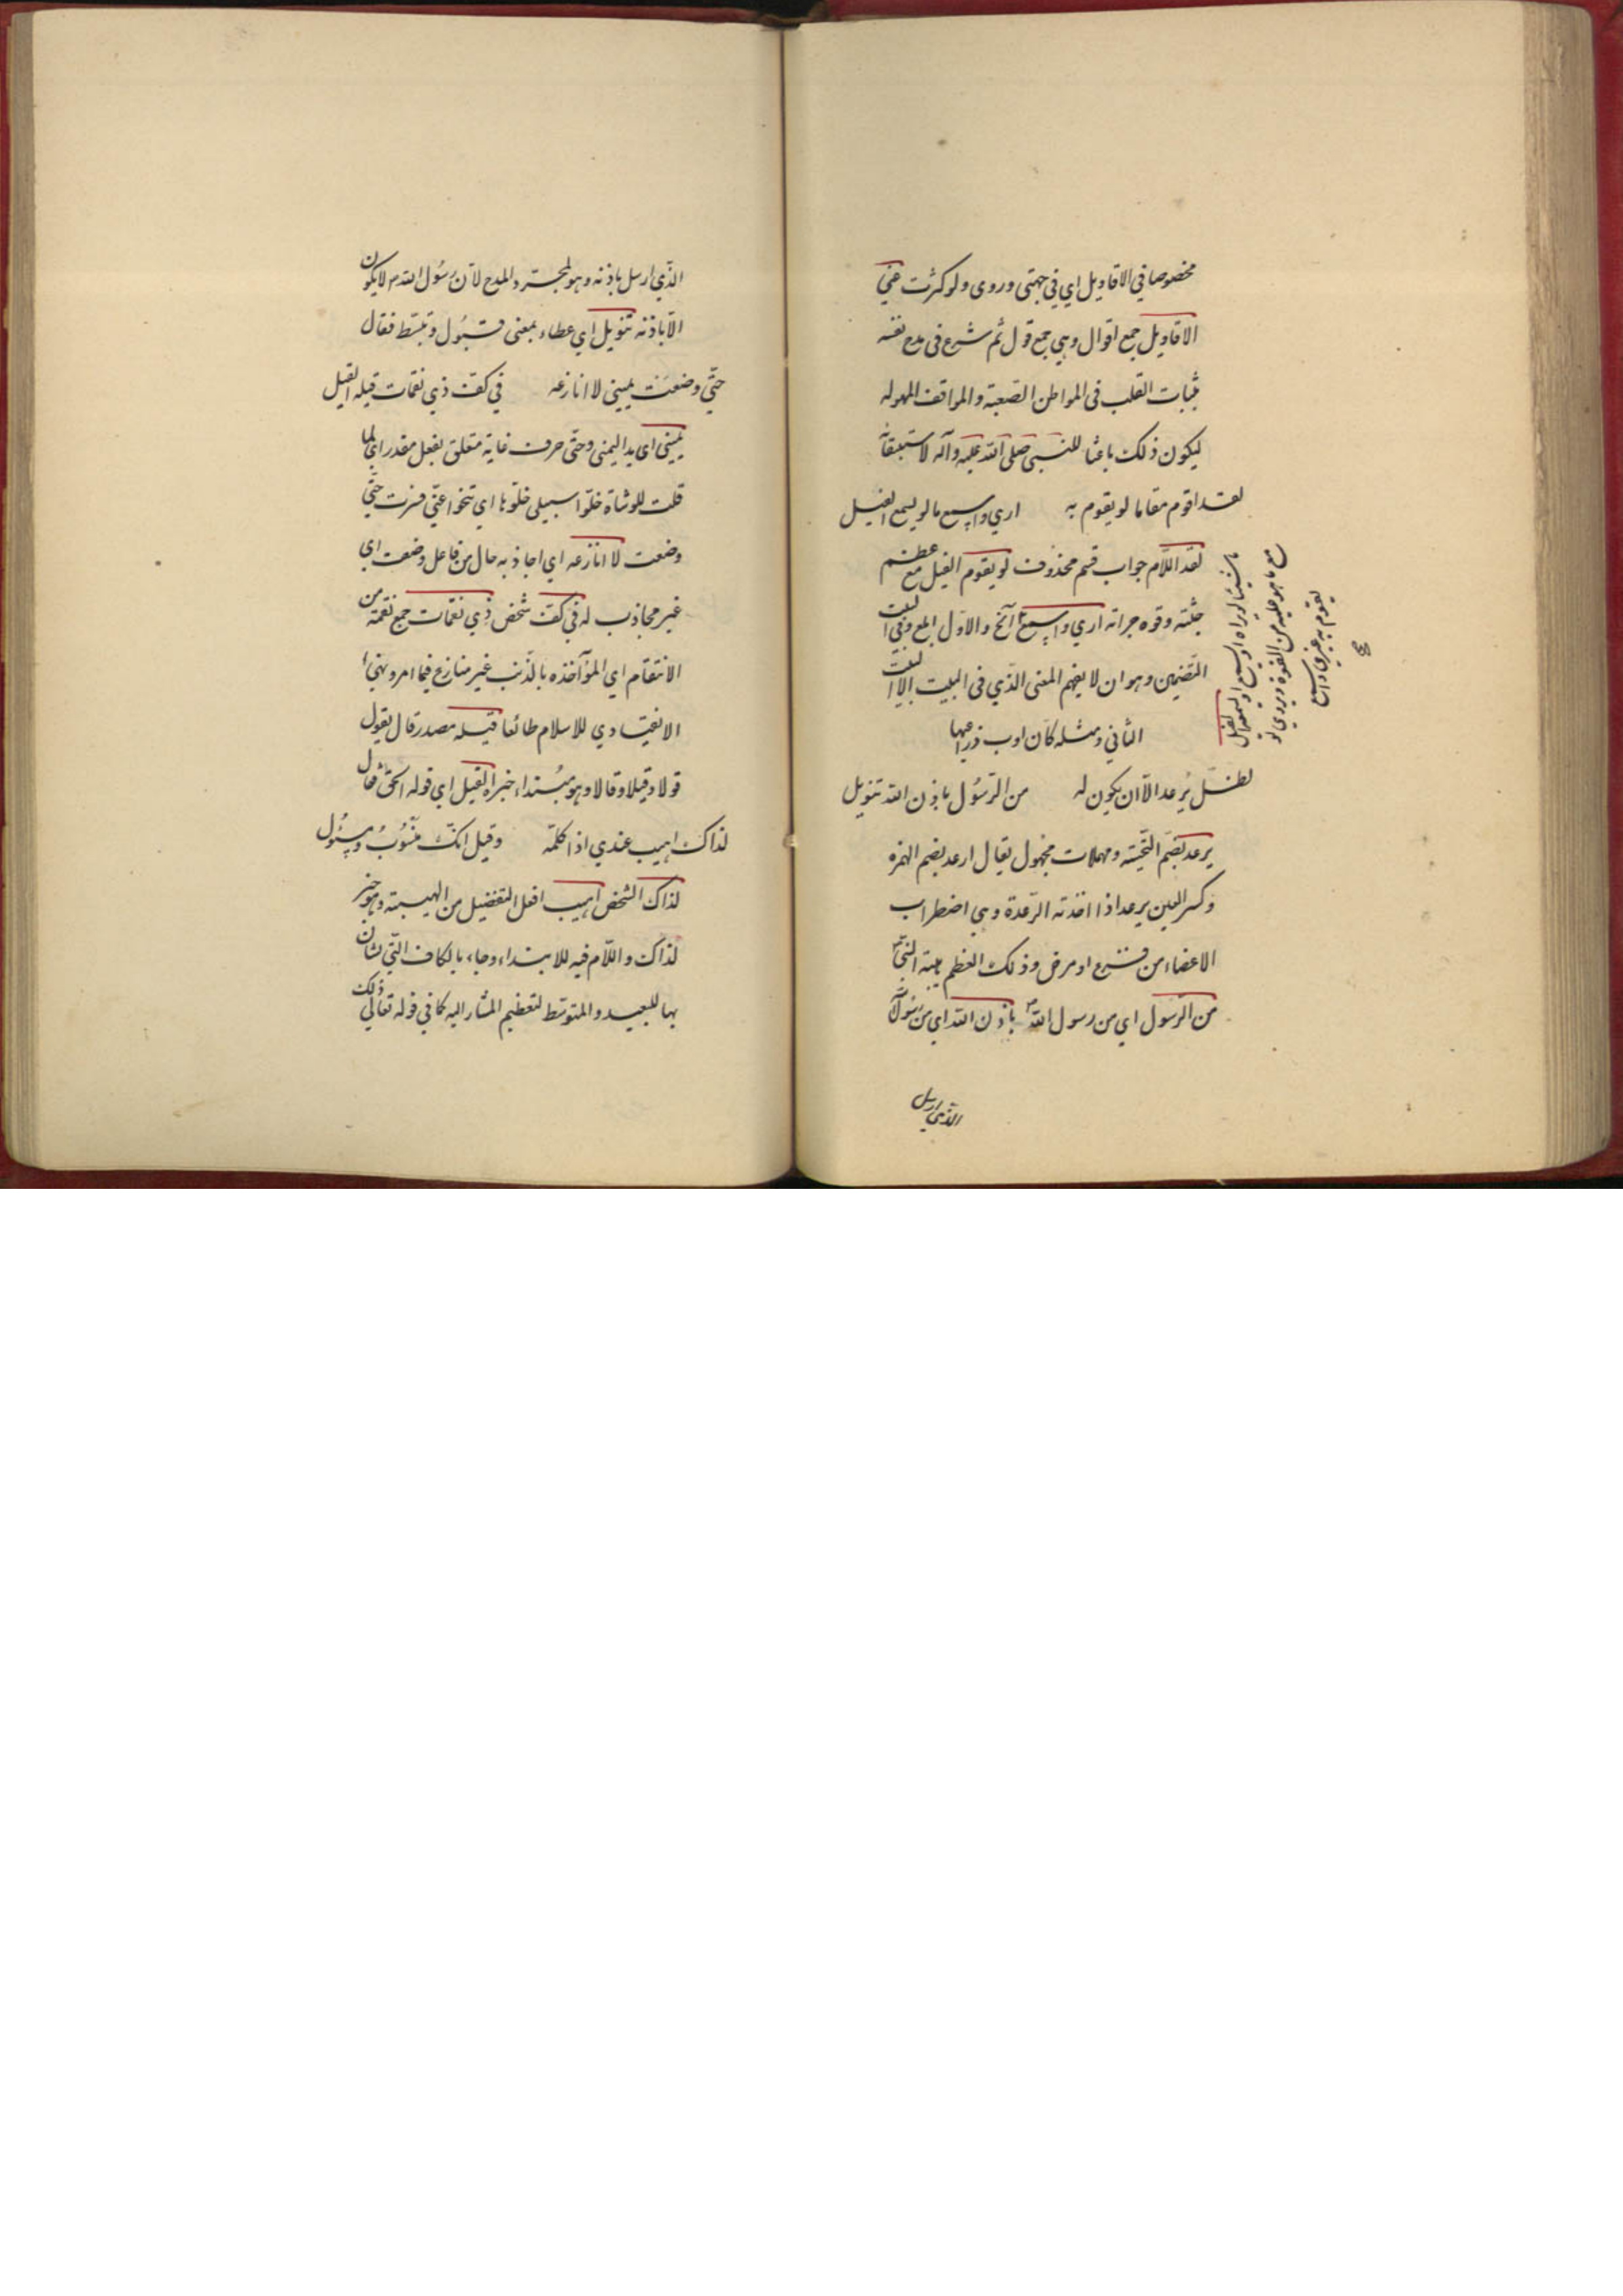 مخصوصا في الاقاويل اي في جهتى وروى ولو كثرت عنّي
الاقاويل جمع اقوال وهي جمع قول ثم شرع فى مدح نفسه
بثبات القلب فى المواطن الصّعبة والمواقف المهوله
ليكون ذلك باعثا للنّبى صلى الله عليه وآله لاستبقائه
لقد اقوم مقاما لو يقوم به ارى واسمع ما لو يسمع الفيل
لقد اللّام جواب قسم محذوف لو يقوم الفيل مع عظم
جثته وقوه جراته ارى واسمع الخ والاوّل ابلغ وفى البيت
التّضمين وهو ان لا يفهم المعنى الّذي فى البيت الا بالبيت
الثاني ومثله كأن اوب ذراعيها
لظلّ يُرعد الّا ان يكون له من الرّسُول باذن الله تنويل
يرعد بضمّ التّحتيّة ومهملات مجهول يقال ارعد بضم الهمزه
وكسر العين يرعد اذا اخذته الرّعدة وهي اضطراب
الاعضاء من فزع او مرض وذلك العظم هيبة النّبي
من الرّسول اي من رسول الله باذن الله اي من رسُول الله
ما شيئا لو يراه او يسمع الفيل
مع ما هو عليه من القوة ويروي لو
يقوم به غيري واسمع
الذي ارسل
الذّي ارسل باذنه وهو لمجرّد المدح لأنّ رسُول الله لا يكون
الّا باذنه تنويل اي عطاء بمعنى قبُول وتبسّط فقال
حتّي وضعت يميني لا انازعه في كفّ ذي نقمات قيله القيل
يميني اى يد اليمنى وحتّى حرف غاية متعلق بفعل مقدر اي لما
قلت للوشاة خلّوا سبيلى خلّوها اي تنحوا عنّي فسرت حتّي
وضعت لا انازعه اي اجاذبه حال من فاعل وضعت اي
غير مجاذب له في كفّ شخص ذي نقمات جمع نقمة من
الانتقام اي المؤاخذه بالذّنب غير منازع فيما امر ونهي
الانقيادي للاسلام طائعا قيله مصدر قال يقول
قولا وقيلا وقالا وهو مبُتداء خبراه القيل اي قوله الحق فقال
لذاك اهيب عندي اذا كلّمه وقيل انكّ منسُوبُ ومسئول
لذاك الشخص اهيب افعل التفضيل من الهيبة وهو خبر
لذاك واللّام فيه للابتداء وجاء بالكاف الّتي شان
بها للبعيد والمتوسّط لتعظيم المشار اليه كما في قوله تعالي ذلك